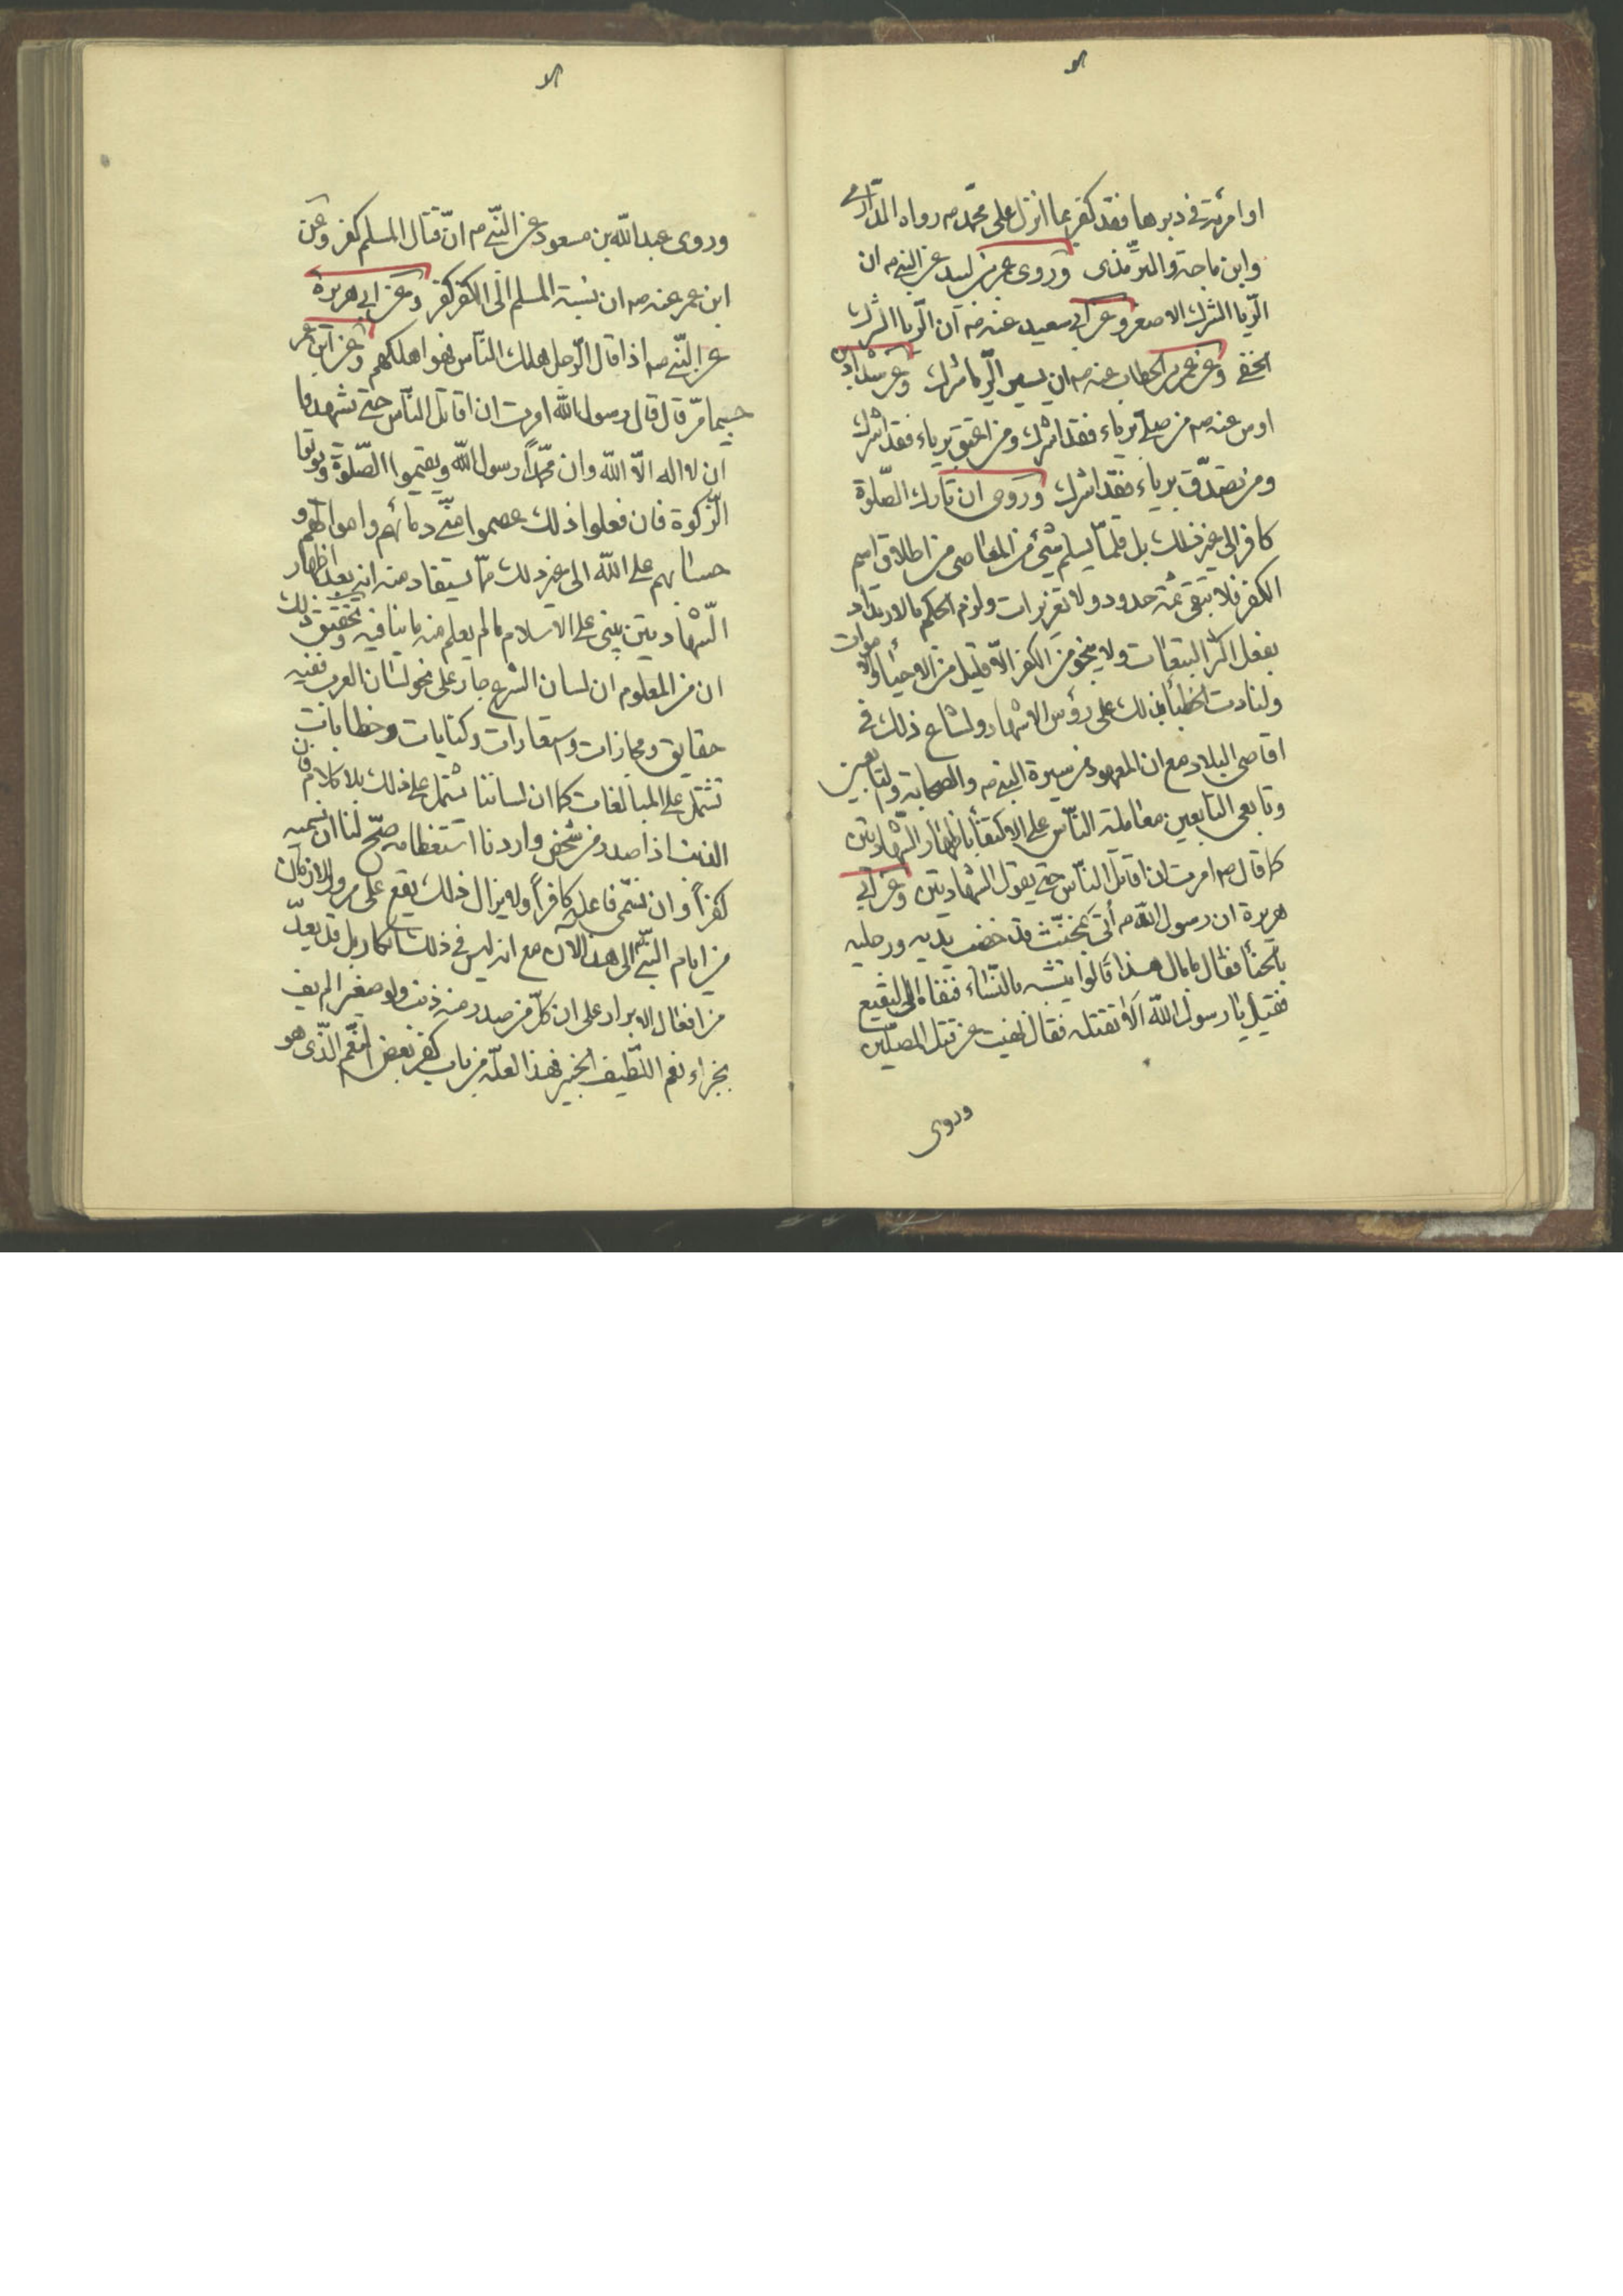 او امرئته فى دبرها فقد كفر بما انزل على محمّد ص رواه الدّارمى
وابن ماجة والترّمذى وروى عمر بن لبيد عن النبى ص ان
الرّيا الشرك الاصغر وعن ابى سعيد عنه ص ان الرّيا الشرك
الخفى وعن عمر بن الخطاب عنه ص ان يسير الرّيا شرك وعن شداد بن
اوس عنه ص من صلّى برياء فقد اشرك ومن اعتق برياء فقد اشرك
ومن تصدّق برياء فقد اشرك وروى ان تارك الصّلوة
كافر الى غير ذلك بل قلّما يسلم شئ من المعاصى من اطلاق اسم
الكفر فلا تبقى ثمة حدود ولا تعزيرات ولزم الحكم بالارتداد
بفعل اكثر التبعات ولا ينجو من الكفر الا قليل من الاحياء والاموات
ولنادت الخطباء بذلك على رؤس الاشهاد ولشاع ذلك فى
اقاصى البلاد مع ان المعهود من سيرة النبى ص والصحابة والتابعين
وتابعى التابعين معاملة النّاس على الاكتفاء باظهار الشّهادتين
كما قال ص امرت ان اقاتل النّاس حتى يقول الشهادتين وعن ابى
هريرة ان رسول الله ص أتى بمخنّث قد خضب يديه ورجليه
بالحناء فقال ما بال هذا قالوا يتشبه بالنّساء فنفاه الى البقيع
فقيل يا رسول الله ألا تقتله فقال نهيت عن قتل المصلّين
وروى
وروى عبد الله بن مسعود عن النّبى ص انّ قتال المسلم كفر وعن
ابن عمر عنه ص ان نسبة المسلم الى الكفر كفر وعن ابى هريرة
عن النّبى ص اذا قال الرّجل هلك النّاس فهو اهلكهم وعن ابن عمر
حيثما مرّ قال قال رسول الله امرت ان اقاتل النّاس حتى تشهدوا
ان لا اله الّا الله وان محمّداً رسول الله ويقيموا الصّلوة ويؤتوا
الزّكوة فان فعلوا ذلك عصموا منّى دمائهم واموالهم و
حسابهم على الله الى غير ذلك ممّا يستفاد منه انه بعد اظهار
الشّهادتين يبنى على الاسلام ما لم يعلم منه ما ينافيه وتحقيق ذلك
ان من المعلوم ان لسان الشرع جار على نحو لسان العرب ففيه
حقايق ومجازات واستعارات وكنايات وخطابات
تشتمل على المبالغات كما ان لساننا يشتمل على ذلك بلا كلام فان
الذنب اذا صدر من شخص واردنا استعظامه صحّ لنا ان نسميه
كفراً وان نسّمى فاعله كافراً ولا يزال ذلك يقع على مرور الازمان
من ايام النبّى الى هذا الان مع انه ليس فى ذلك انكار بل قد يعدّ
من افعال الابرار على ان كلّ من صدر منه ذنب ولو صغيرا لم يف
بجزاء نعم اللّطيف الخبير فهذا لعلّه من باب كفر بعض النّعم الّذى هو